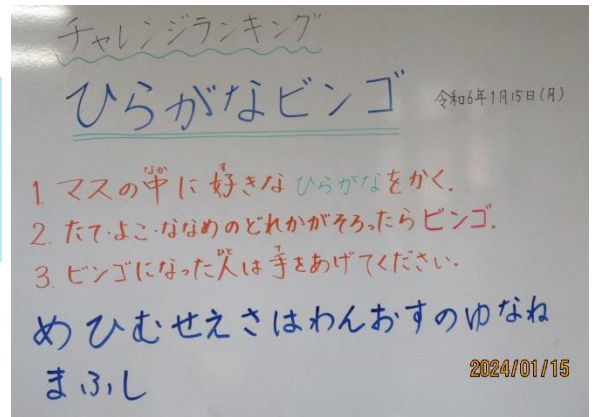 チャレンジランキング
ひらがなビンゴ
令和6年1月15日(月)
1. マスの中に好きなひらがなをかく.
2. たて・よこ・ななめのどれかがそろったらビンゴ.
3. ビンゴになった人は手をあげてください.
めひむせえさはわんおすのゆなね
まふし
2024/01/15